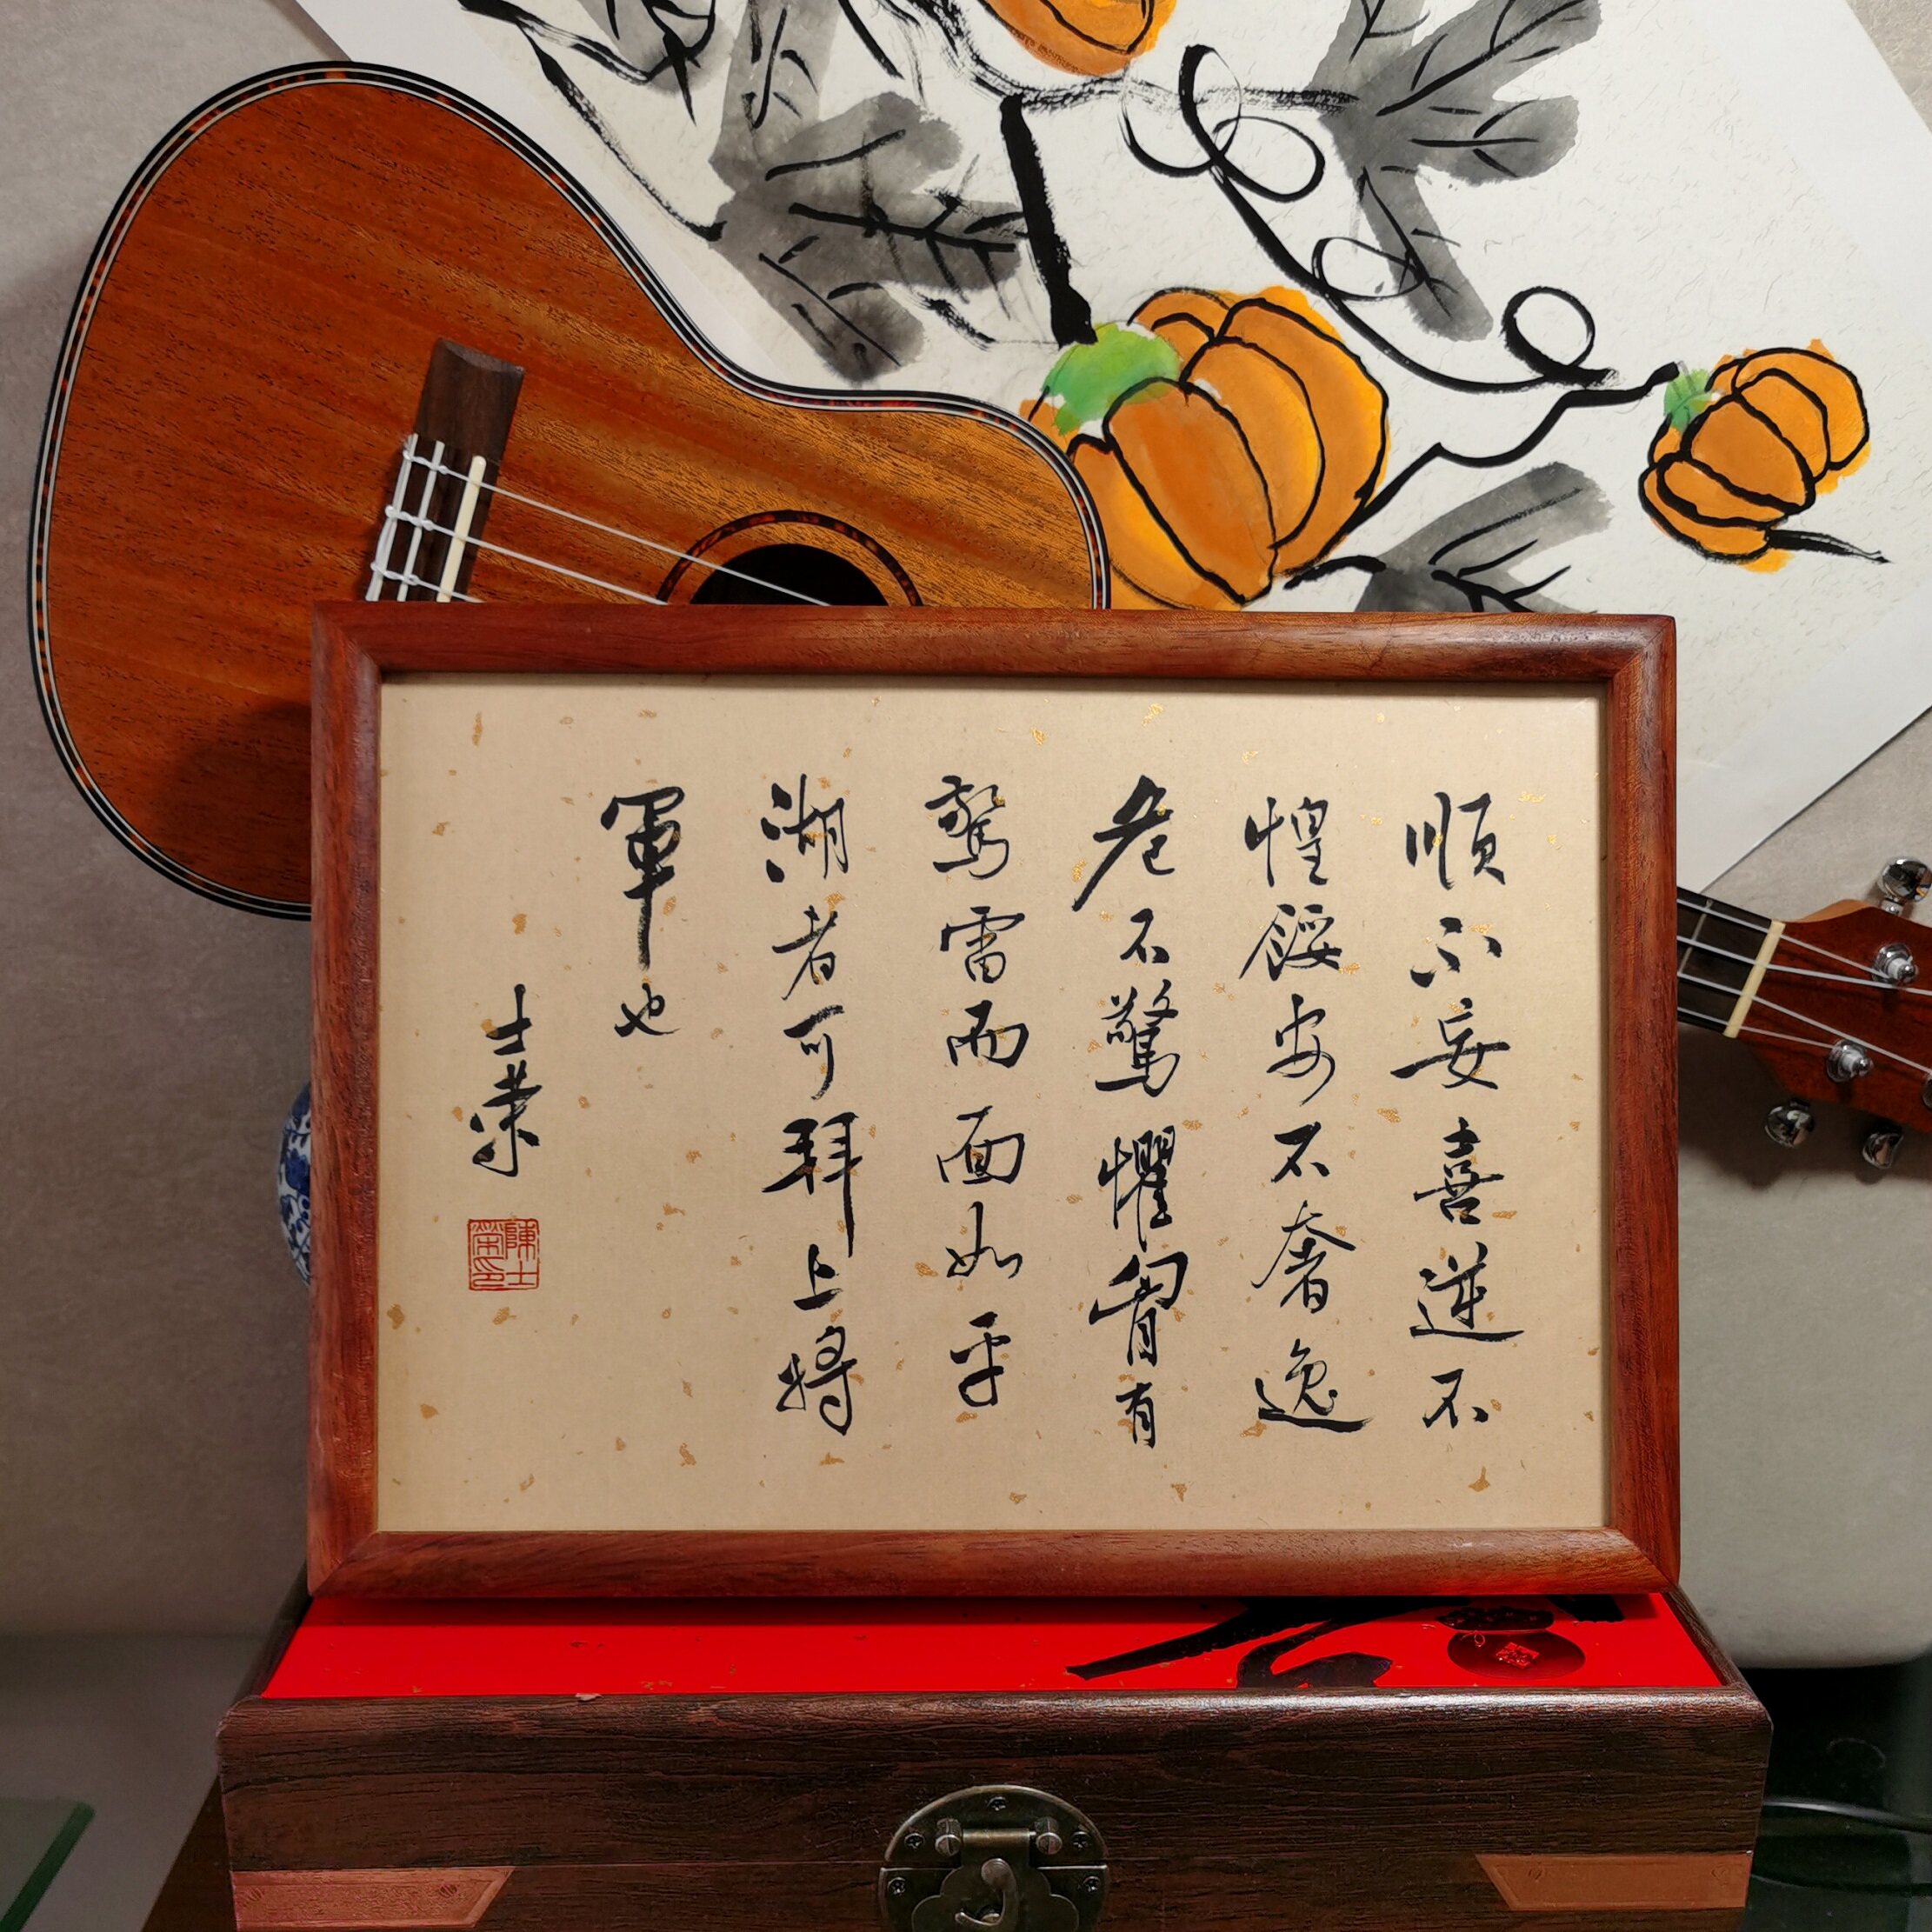 順不妄喜逆不
惶餒安不奢逸
危不驚懼胷有
驚雷而面如平
湖者可拜上將
軍也
士榮
陳士榮印